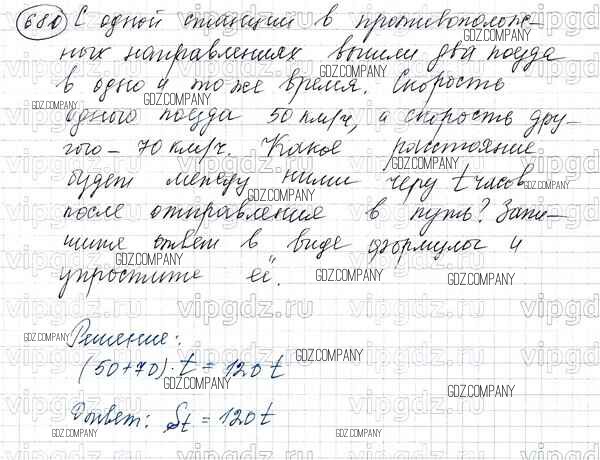 680 С одной станции в противополож-
ных направлениях вышли два поезда
в одно и то же время. Скорость
одного поезда 50 км/ч, а скорость дру-
гого – 70 км/ч. Какое расстояние
будет между ними через t часов
после отправления в путь? Запи-
шите ответ в виде формулы и
упростите её.
Решение:
(50+70)·t = 120t
Ответ: St = 120t
GDZ.COMPANY
vipgdz.ru